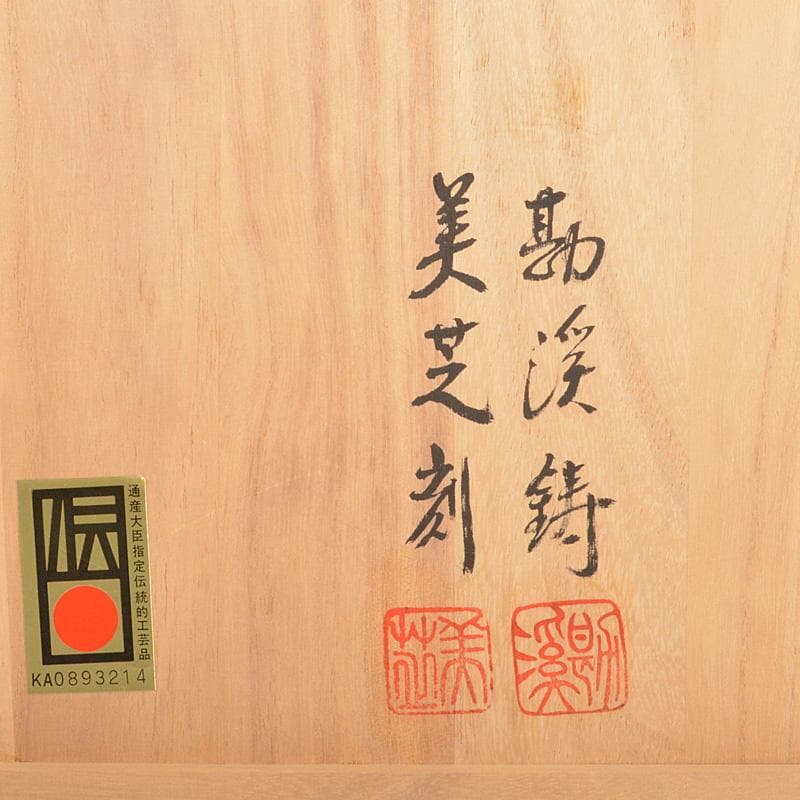 勘渓鋳
美芝刻
勘渓
美芝
伝
通産大臣指定伝統的工芸品
KA0893214